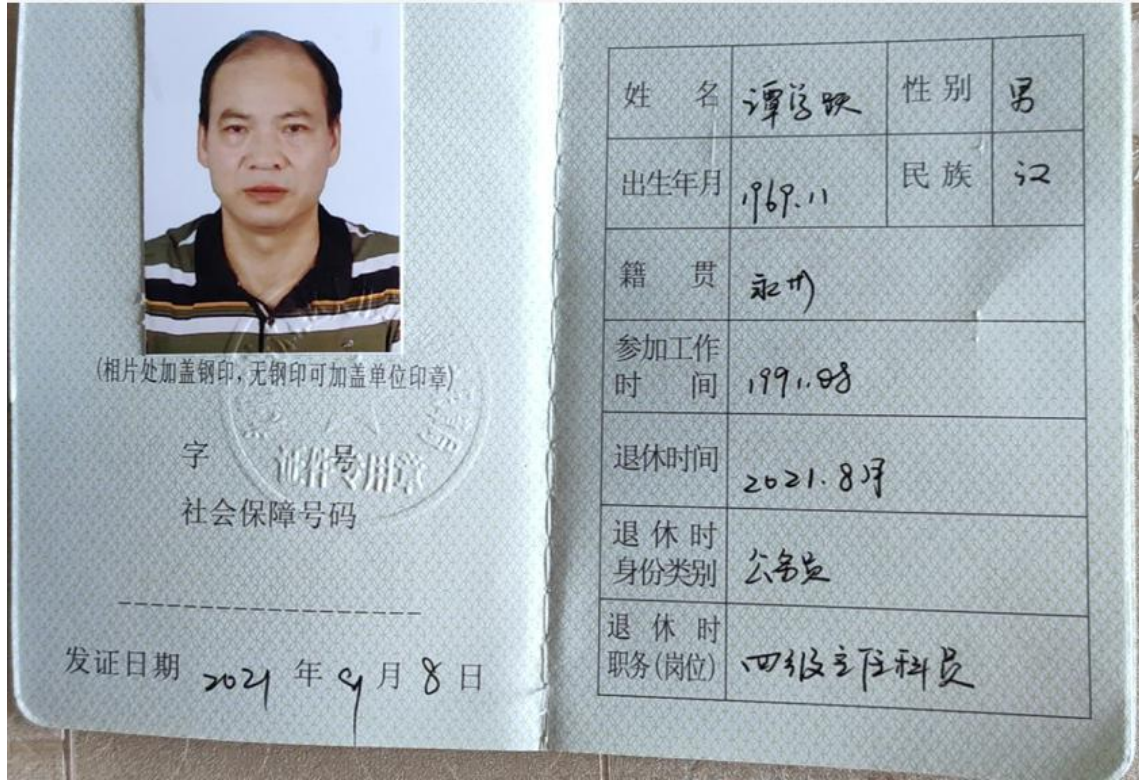 (相片处加盖钢印，无钢印可加盖单位印章)
字 号
证件专用章
社会保障号码
发证日期 2021 年 9 月 8 日
姓 名 谭学跃 性 别 男
出生年月 1969.11 民 族 汉
籍 贯 永州
参加工作
时 间 1991.08
退休时间 2021.8月
退 休 时
身份类别 公务员
退 休 时
职务(岗位) 四级主任科员